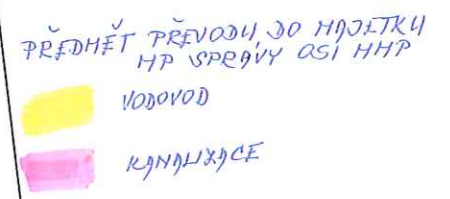 PŘEDMĚT PŘEVODU DO MAJETKU
HP SPRÁVY OSI MHP
VODOVOD
KANALIZACE